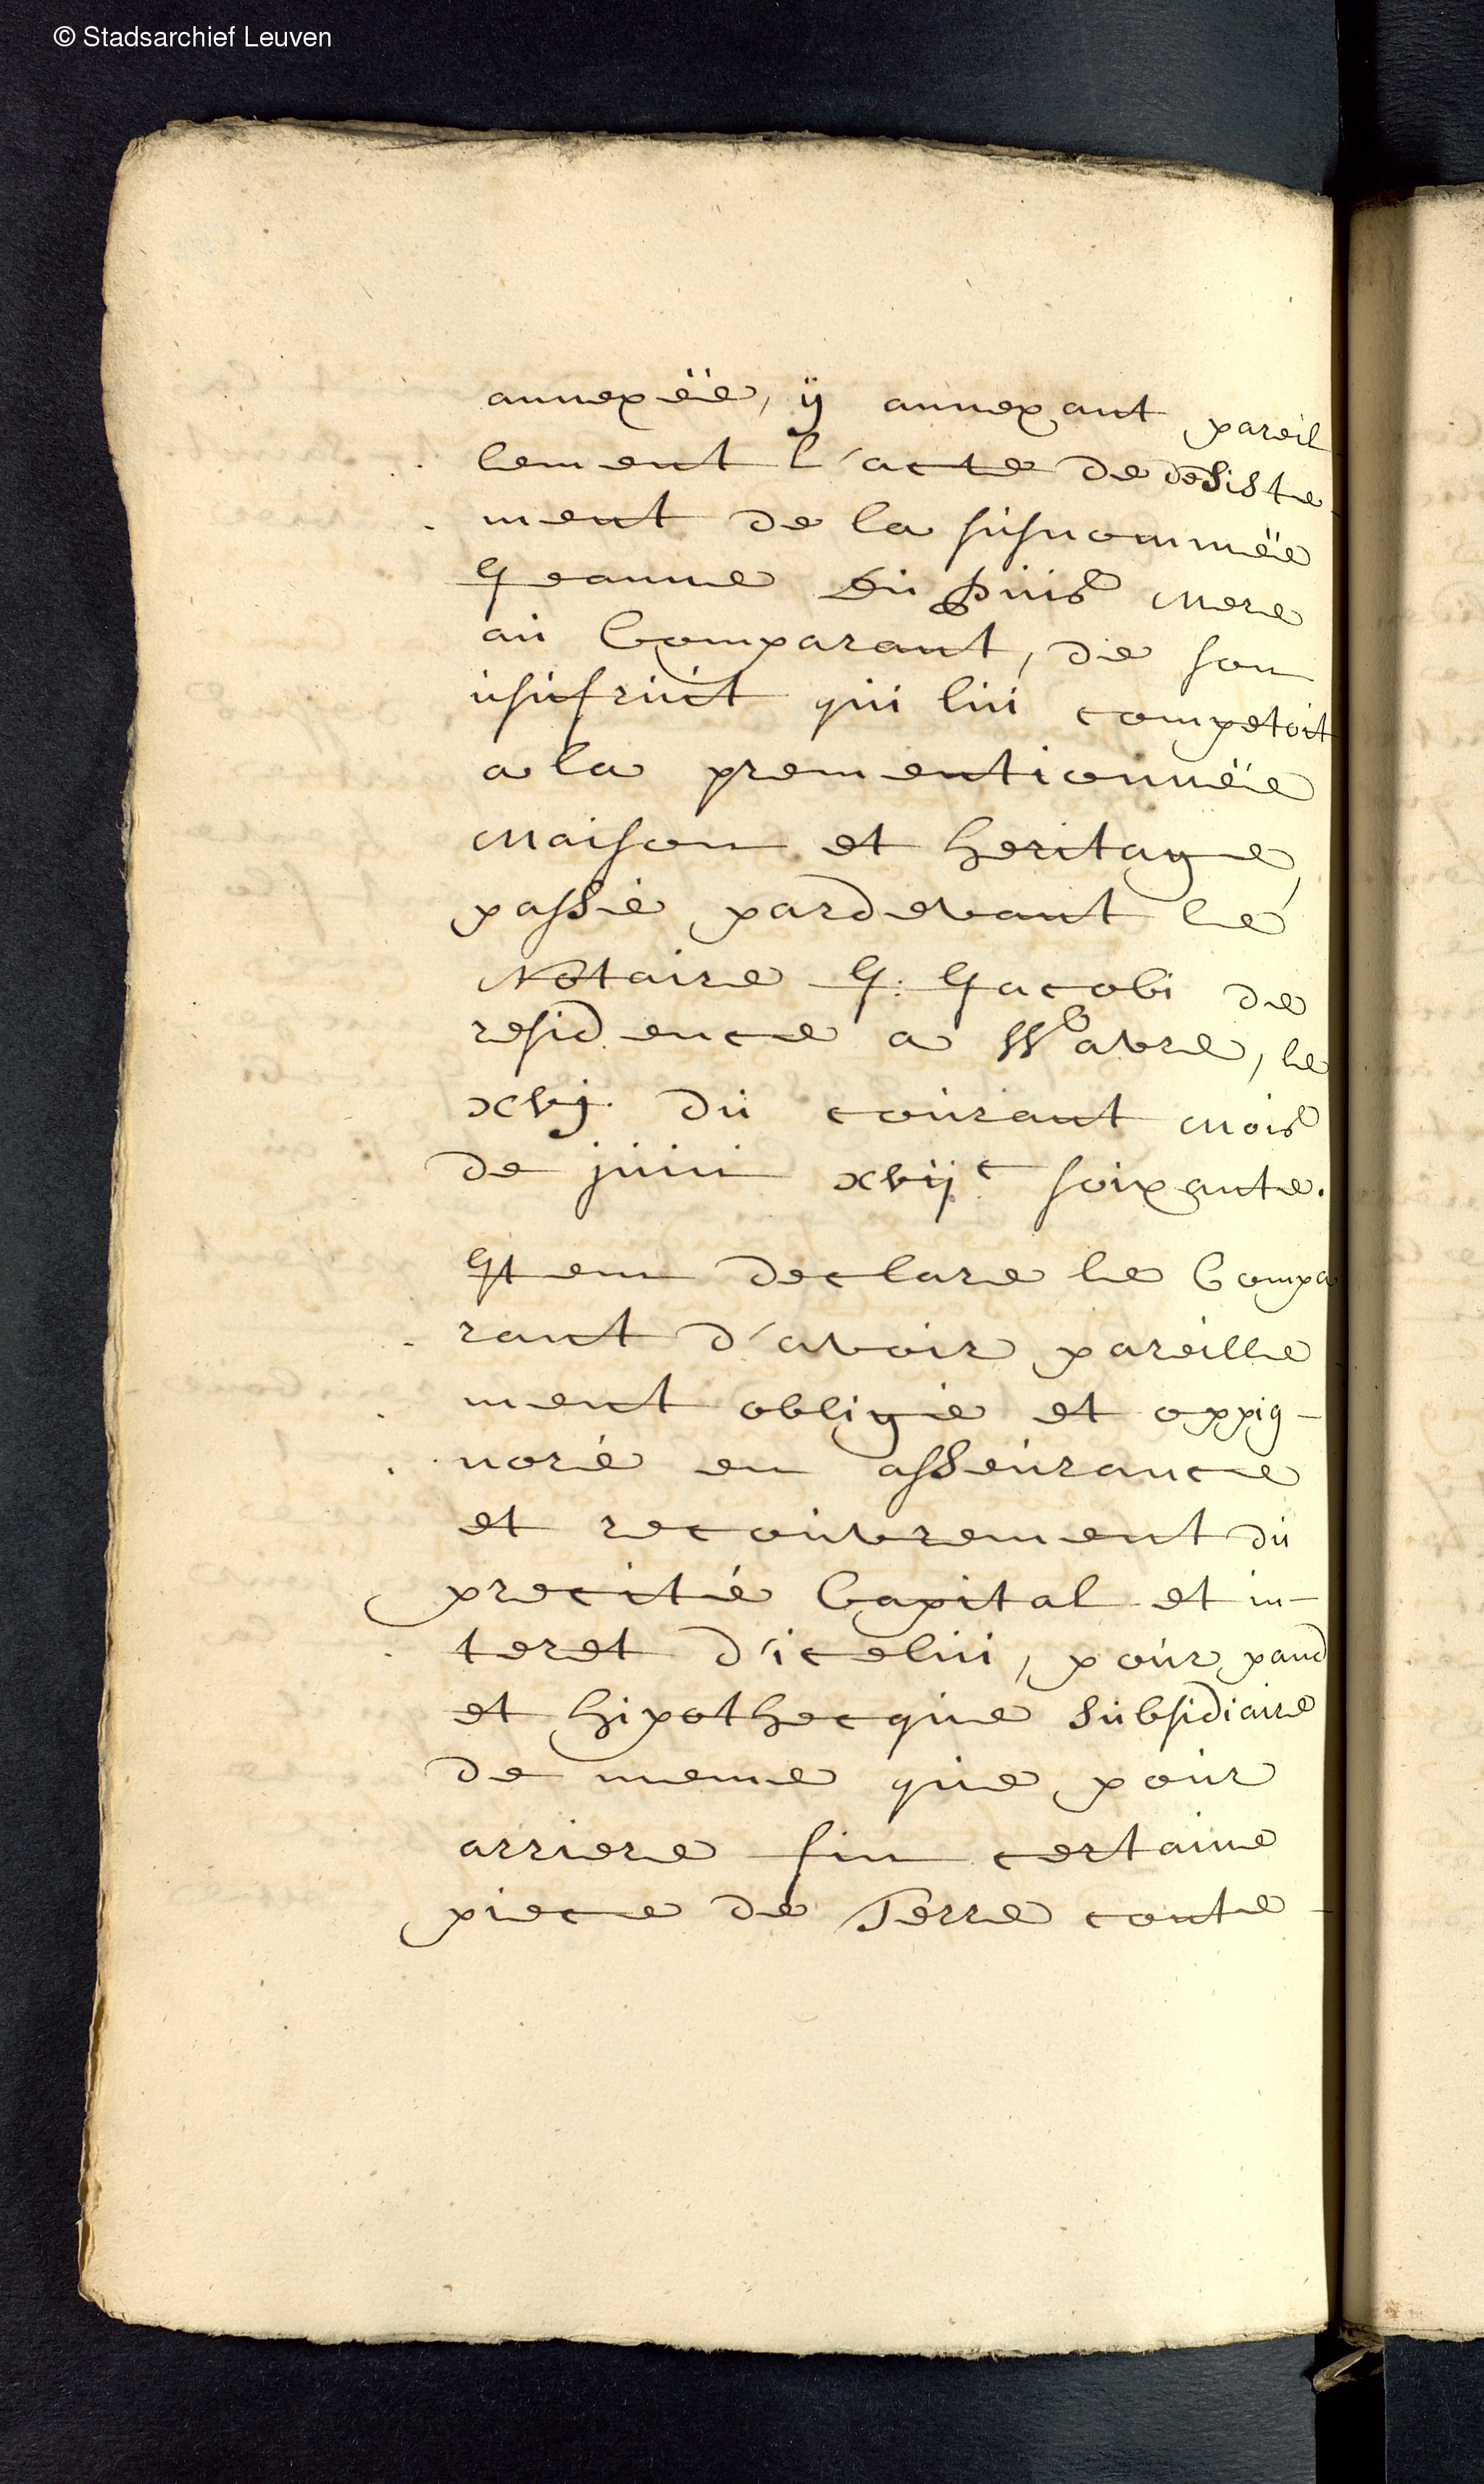 © Stadsarchief Leuven
annexëe, ÿ annexant pareil
lement l'acte de desiste
ment de la susnommëe
Jeanne du Puis mere
au Comparant, de son
usufruit qui lui competoit
a la prementionnëe
maison et heritage,
passé pardevant le
Notaire J: Jacobi de
residence a Wavre, le
xvj du courant mois
de juin xvijc soixante.
Item declare le Compa
rant d'avoir pareille
ment obligé et oppig-
noré en asseurance
et recouvrement du
precité Capital et in-
teret d'icelui, pour pand
et hipothecque subsidiaire
de meme que pour
arriere fin certaine
piece de Terre conte-